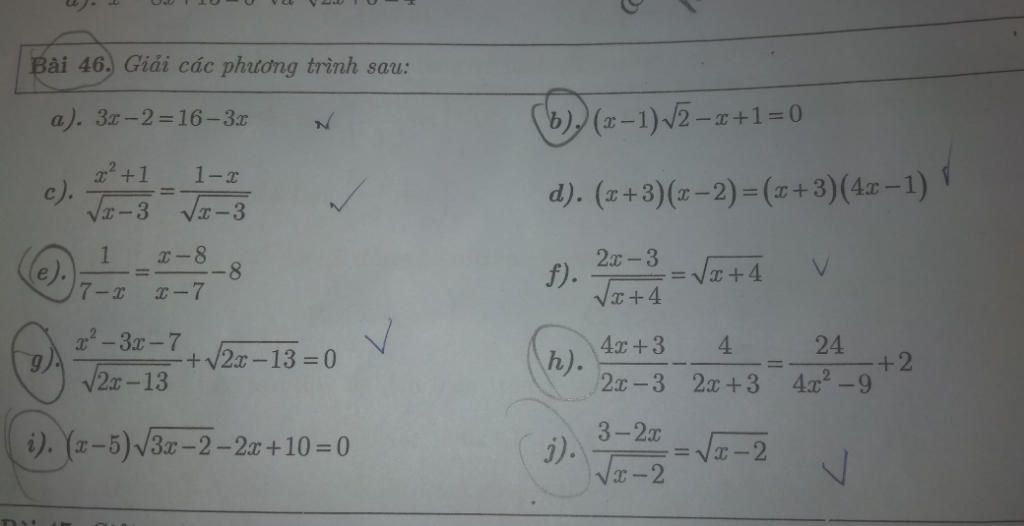 Bài 46. Giải các phương trình sau:
a). 3x−2=16−3x
b). (x−1)√2−x+1=0
c). (x²+1)/√(x−3) = (1−x)/√(x−3)
d). (x+3)(x−2)=(x+3)(4x−1)
e). 1/(7−x) = (x−8)/(x−7) −8
f). (2x−3)/√(x+4) = √(x+4)
g). (x²−3x−7)/√(2x−13) + √(2x−13) = 0
h). (4x+3)/(2x−3) − 4/(2x+3) = 24/(4x²−9) +2
i). (x−5)√(3x−2)−2x+10=0
j). (3−2x)/√(x−2) = √(x−2)